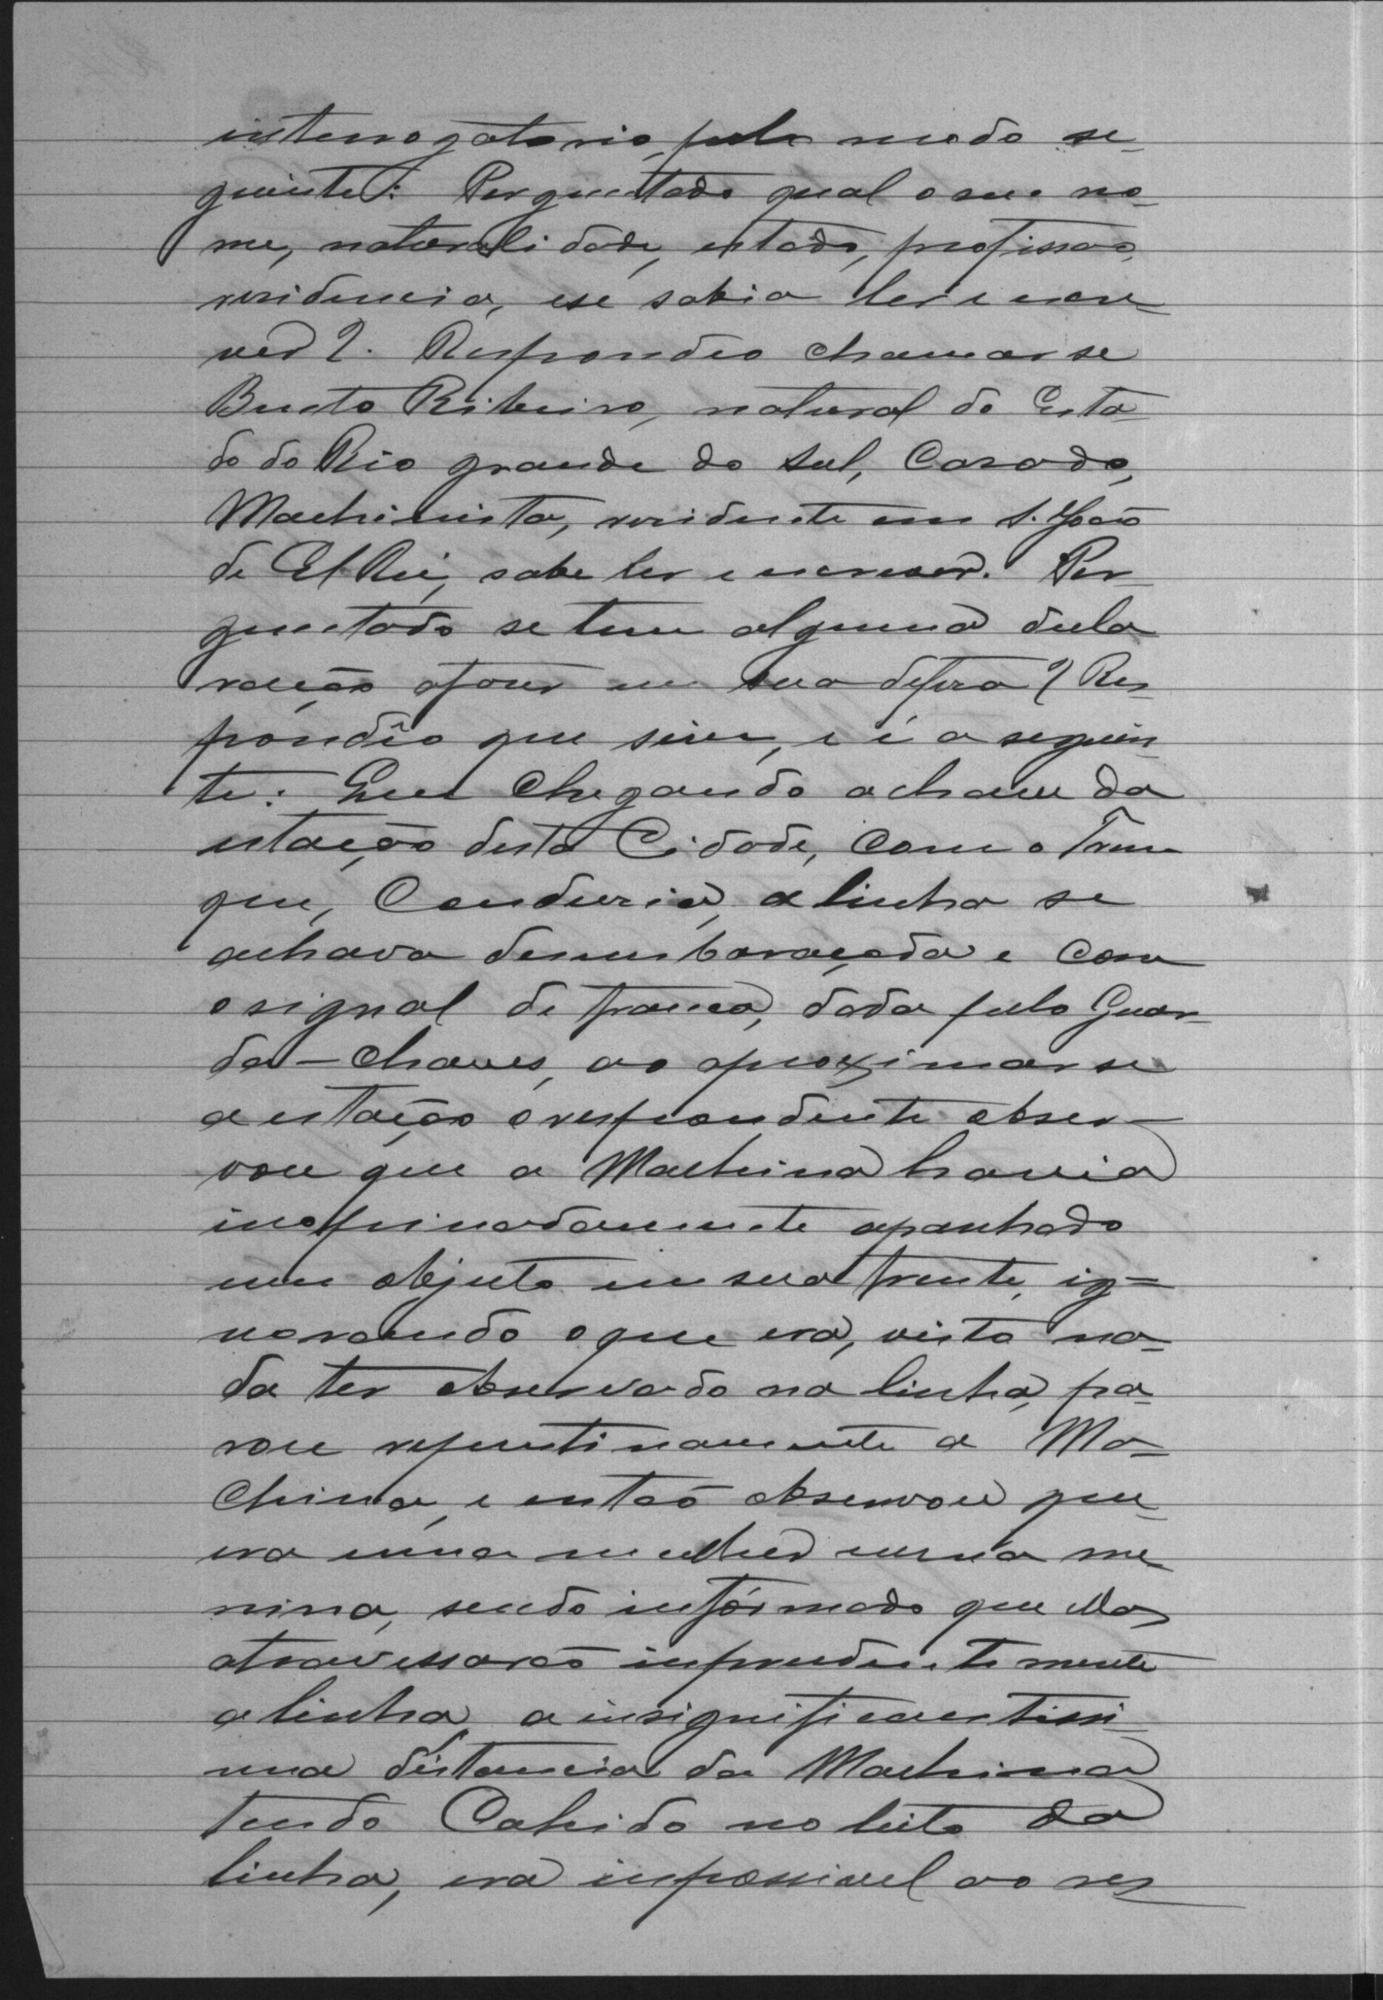 interrogatorio, pelo modo se-
guinte: Perguntado qual o seu no-
me, naturalidade, estado, profissão,
residencia, e se sabia ler e escre-
ver?. Respondeo chamar se
Bento Ribeiro, natural do Esta-
do do Rio grande do Sul, Casado,
Machinista, residente em S. João
de El Rei, sabe ler e escrever. Per-
guntado se tem alguma decla
ração afazer em sua defeza? Res-
pondêo que sim, e é a seguin-
te: Que Chegando a chave da
estação desta Cidade, com o Trem
que, Conduzia, a linha se
achava desembaraçada e com
o signal de franca, dada pelo Guar-
da-Chaves, ao aproximar se
a estação o respondente obser-
vou que a Machina havia
inopinadamente apanhado
um objecto em sua frente, ig=
norando o que era, visto na-
da ter observado na linha, pa-
rou repentinamente a Ma=
china, e então observou que
era uma mulher e uma me-
nina, sendo informado que ellas
atravessarão imprudentemente
a linha, a insignificantissi-
ma distancia da Machina
tendo Cahido no leito da
linha, era impossivel ao res-